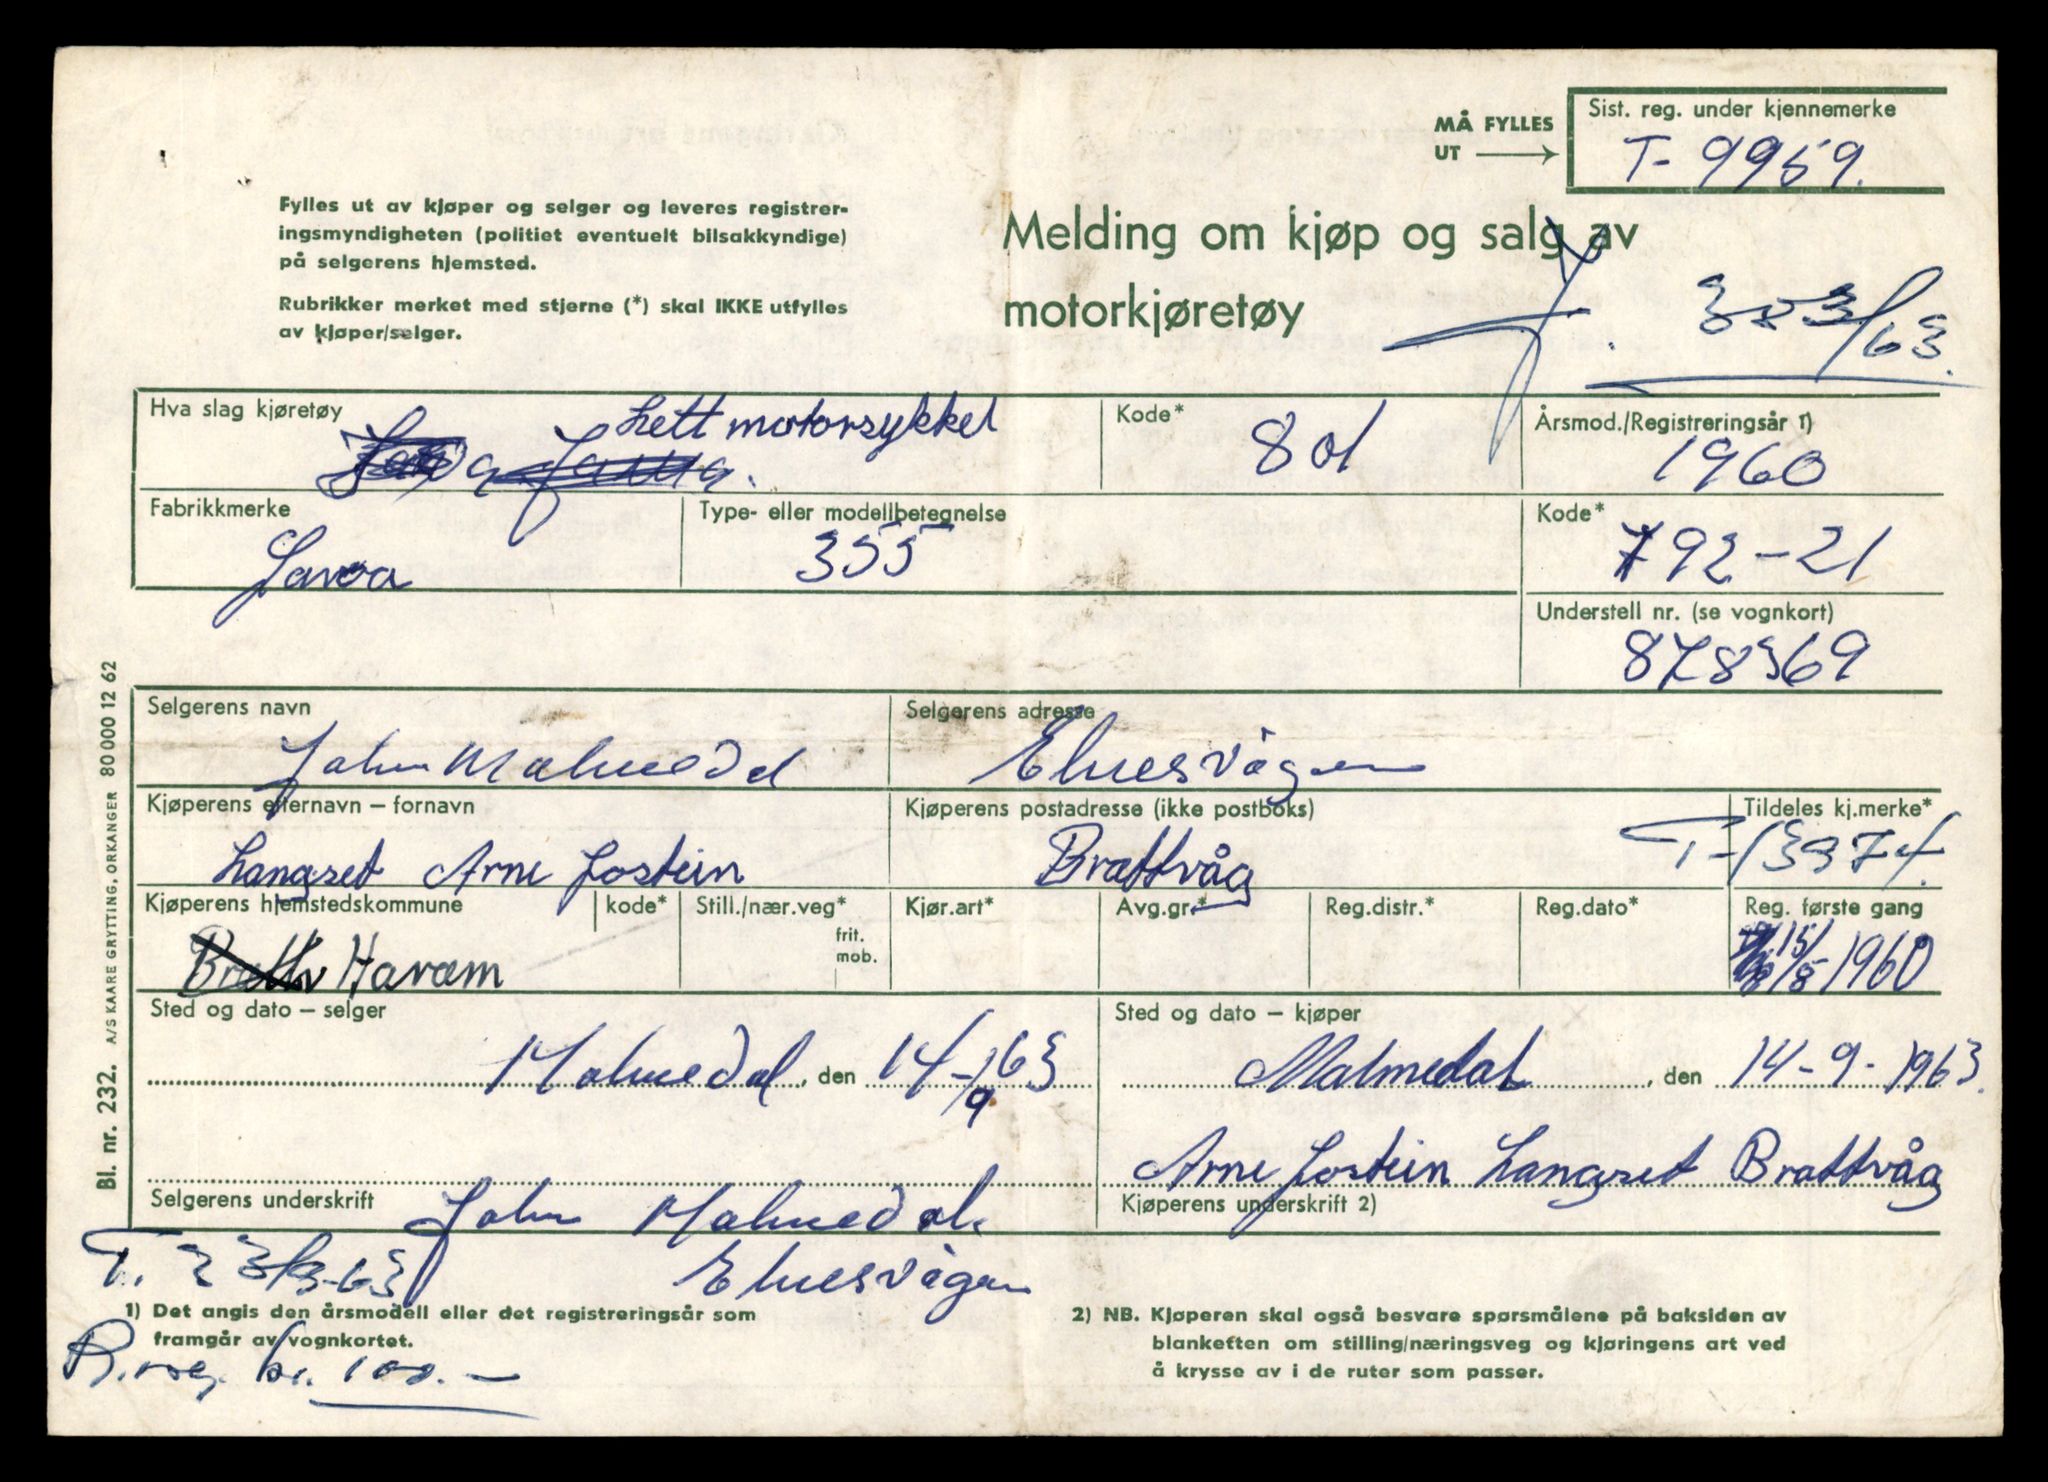 MÅ FYLLES
UT
Sist. reg. under kjennemerke
T-9959.
Fylles ut av kjøper og selger og leveres registrer-
ingsmyndigheten (politiet eventuelt bilsakkyndige)
på selgerens hjemsted.
Rubrikker merket med stjerne (*) skal IKKE utfylles
av kjøper/selger.
Melding om kjøp og salg av
motorkjøretøy
Hva slag kjøretøy
Lett motorsykkel
Kode*
801
Årsmod./Registreringsår 1)
1960
Fabrikkmerke
Javoa
Type- eller modellbetegnelse
355
Kode*
792-21
Understell nr. (se vognkort)
878369
Selgerens navn
John Malmedal
Selgerens adresse
Elnesvågen
Kjøperens etternavn – fornavn
Langset Arne Jostein
Kjøperens postadresse (ikke postboks)
Brattvåg
Tildeles kj.merke*
T-13974
Kjøperens hjemstedskommune
Haram
kode*
Still./nær.veg*
frit.
mob.
Kjør.art*
Avg.gr.*
Reg.distr.*
Reg.dato*
Reg. første gang
15/8-1960
Sted og dato – selger
Malmedal, den 14/9-63
Sted og dato – kjøper
Malmedal, den 14-9-1963.
Selgerens underskrift
John Malmedal.
Elnesvågen
Arne Jostein Langset Brattvåg
Kjøperens underskrift 2)
T. 23/9-63
1) Det angis den årsmodell eller det registreringsår som
framgår av vognkortet.
R.reg. kr. 100.-
2) NB. Kjøperen skal også besvare spørsmålene på baksiden av
blanketten om stilling/næringsveg og kjøringens art ved
å krysse av i de ruter som passer.
Bl. nr. 232. A/S KAARE GRYTTING, ORKANGER 80 000 12 62